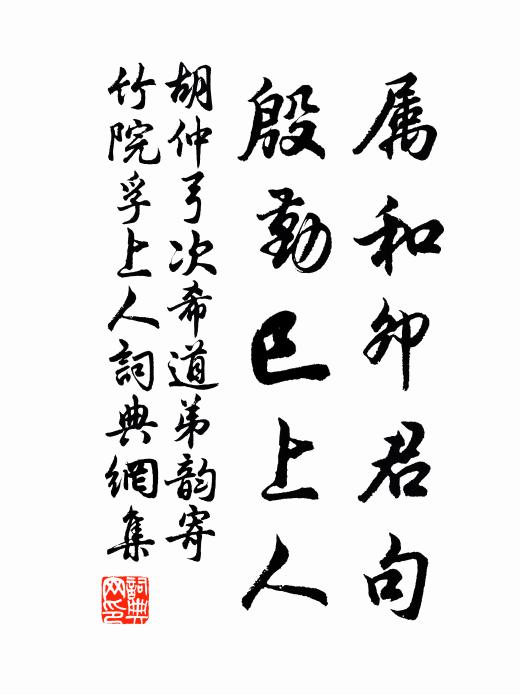 属和卯君句
殷勤巳上人
胡仲弓次希道弟韵寄
竹院孚上人詞典網集
詞典网印